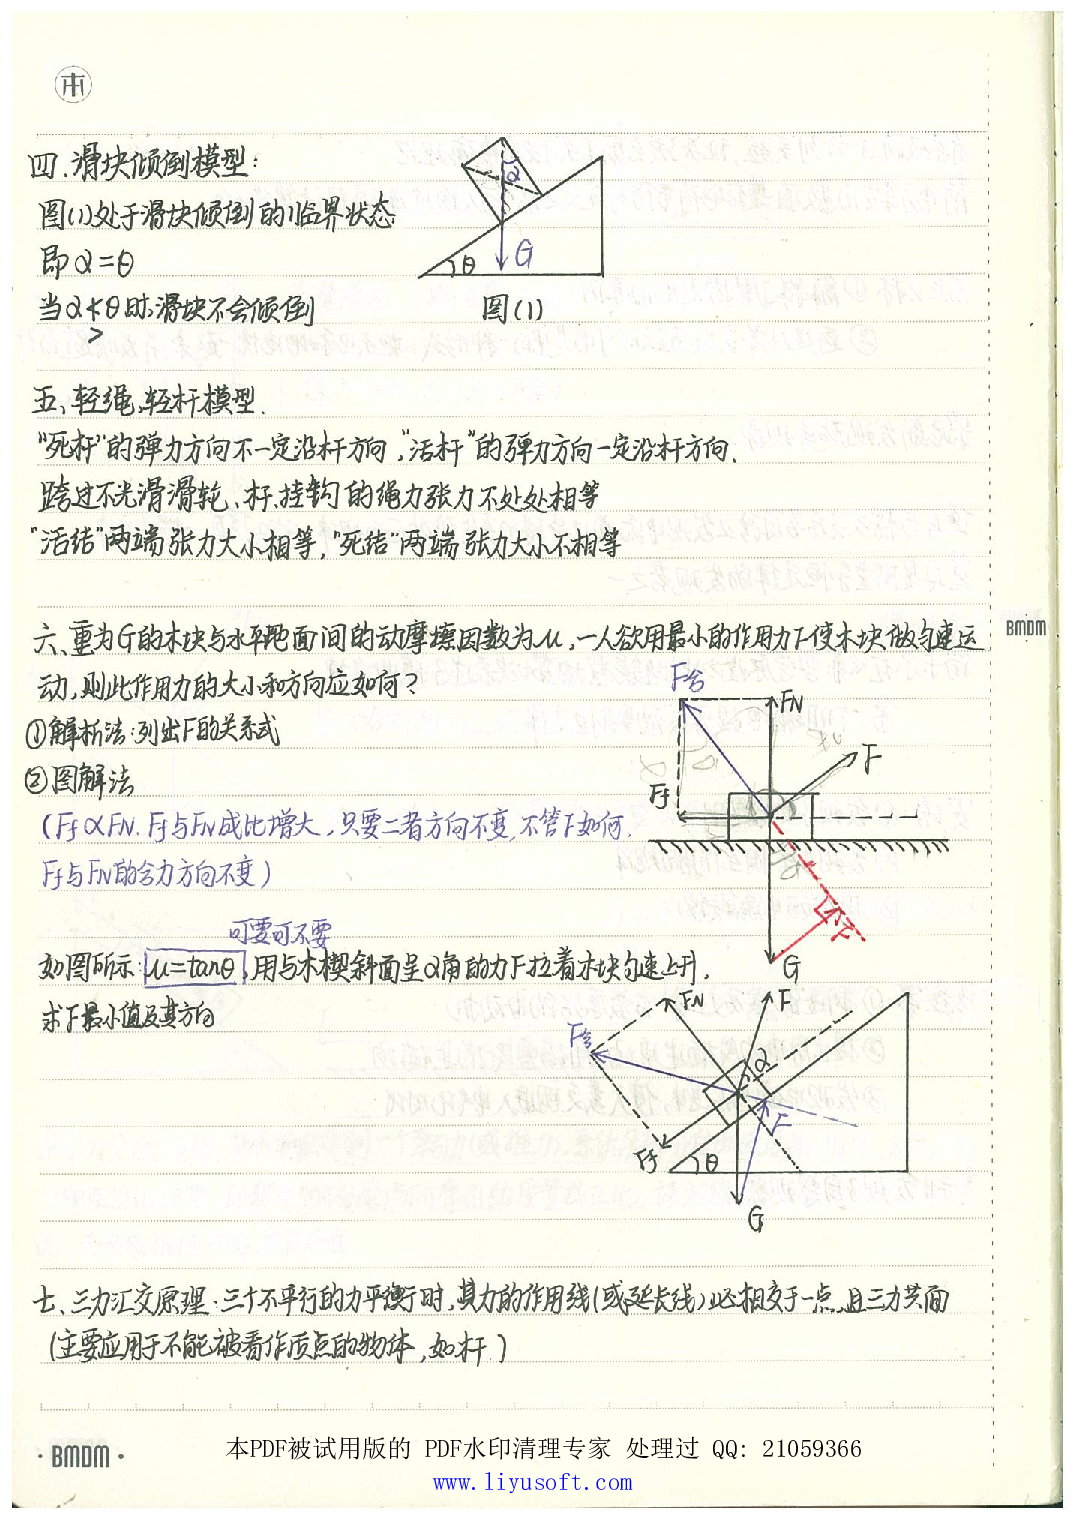 四.滑块倾倒模型:
图(1)处于滑块倾倒的临界状态
即α=θ
当α<θ时,滑块不会倾倒
>
α
θ
G
图(1)
五、轻绳,轻杆模型.
"死杆"的弹力方向不一定沿杆方向,"活杆"的弹力方向一定沿杆方向.
跨过不光滑滑轮、杆、挂钩的绳力张力不处处相等
"活结"两端张力大小相等,"死结"两端张力大小不相等
六、重为G的木块与水平地面间的动摩擦因数为μ,一人欲用最小的作用力F使木块做匀速运
动,则此作用力的大小和方向应如何?
①解析法:列出F的关系式
②图解法
(Ff∝FN.Ff与FN成比增大,只要二者方向不变,不管F如何.
Ff与FN的合力方向不变)
F合
FN
F
Ff
F
G
可要可不要
如图所示:μ=tanθ,用与木楔斜面呈α角的力F拉着木块匀速上升.
求F最小值及其方向
FN
F
F合
α
F
Ff
θ
G
七、三力汇交原理:三个不平行的力平衡时,其力的作用线(或延长线)必相交于一点,且三力共面
(主要应用于不能被看作质点的物体,如杆)
BMDM
·BMDM·
本PDF被试用版的 PDF水印清理专家 处理过 QQ: 21059366
www.liyusoft.com